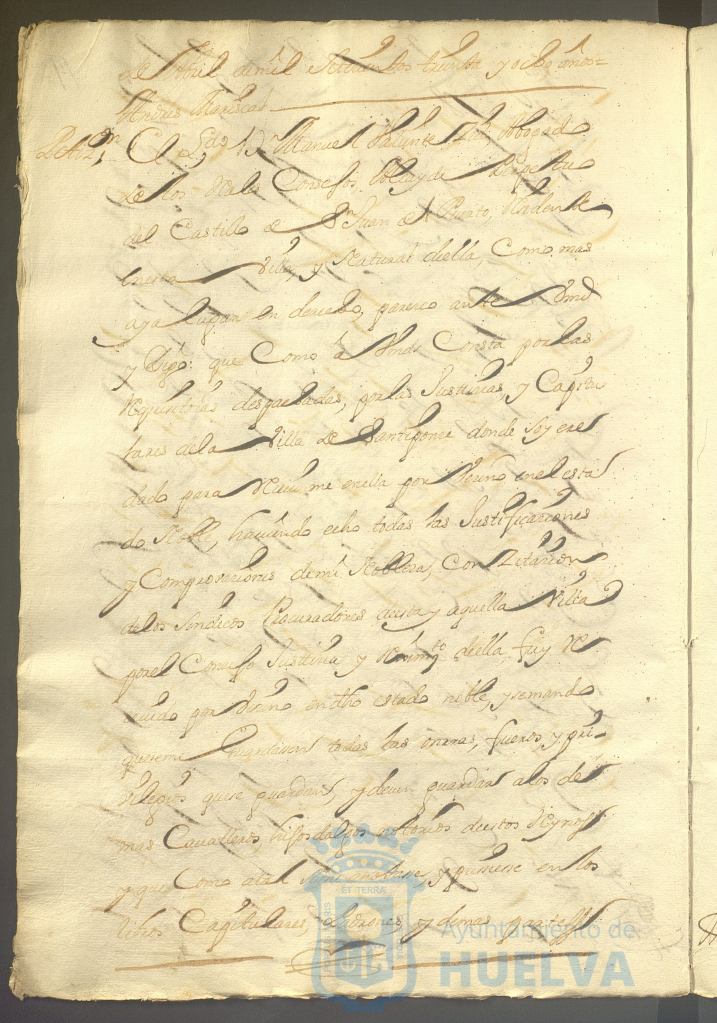 de Abril de mil Setecientos treinta y ocho años =
Andres Mariscal
Petizn. El Lizdo Dn Manuel Abogado
de los Reales Consejos Alcayde Perpetuo
del Castillo de Sn Juan del Puerto, Residente
en esta Villa, y Natural della, Como mas
aya lugar en derecho, paresco ante Vmd
y Digo: que Como á Vmds Consta por las
Requisitorias despachadas, por las Justicias, y Capitu
lares de la Villa de Santiponce donde soy
dado para Reciuirme en ella por Vezino en el esta
do Noble, hauiendo echo todas las Justificaciones
y Comprovaciones de mi Nobleza, Con Zitazion
de los Sindicos Procuradores de esta y aquella Villa
por el Consejo Justicia y Reximto della fuy Re
ceuido por Vezino en dho estado noble, y se mando
que se me Guardasen todas las onrras, fueros, y pri-
vilegios que se guardan, y deuen guardar a los de
mas Cavalleros, hijosdalgos notorios de estos Reynos
y que Como atal se me anotase, y pusiese en los
libros Capitulares, Padrones, y demas partes
ET TERRA
Ayuntamiento de
HUELVA